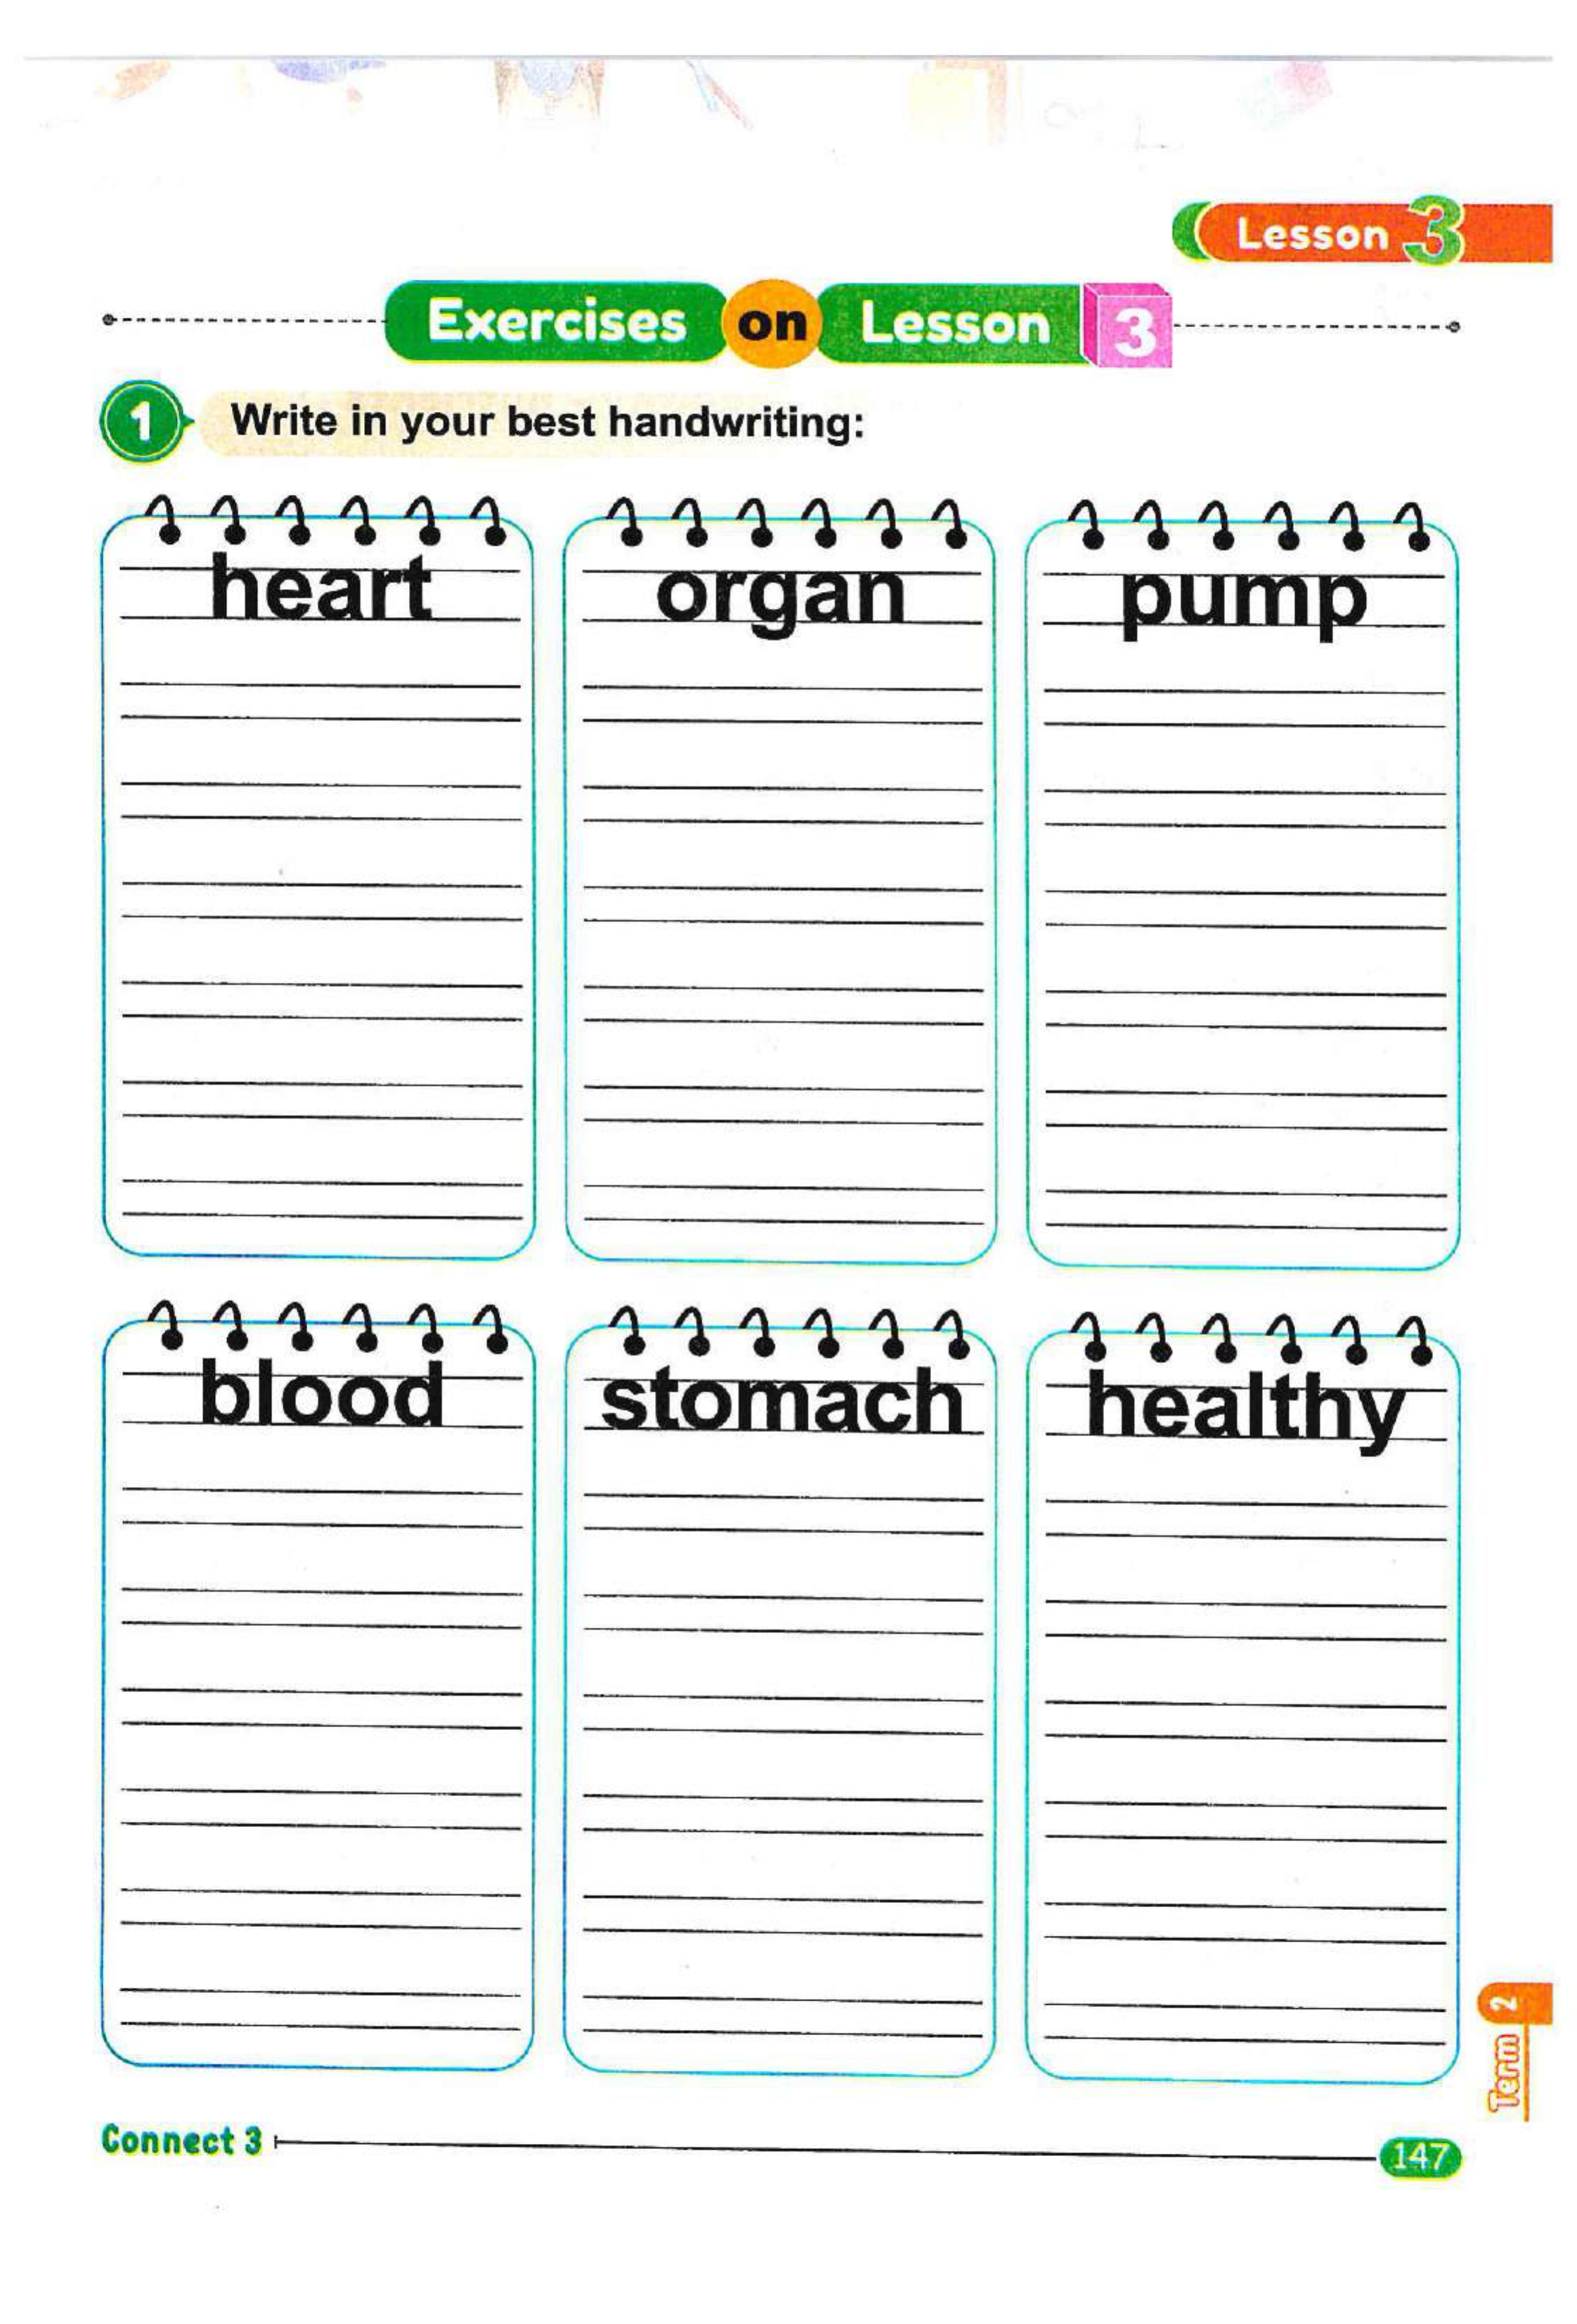 Lesson 3
Exercises on Lesson 3
1 Write in your best handwriting:
heart organ pump
blood stomach healthy
Term 2
Connect 3 147